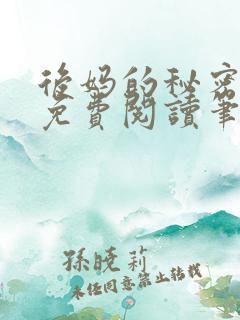 後妈的秘密
免費閱讀筆
孫曉莉
未经同意禁止转载